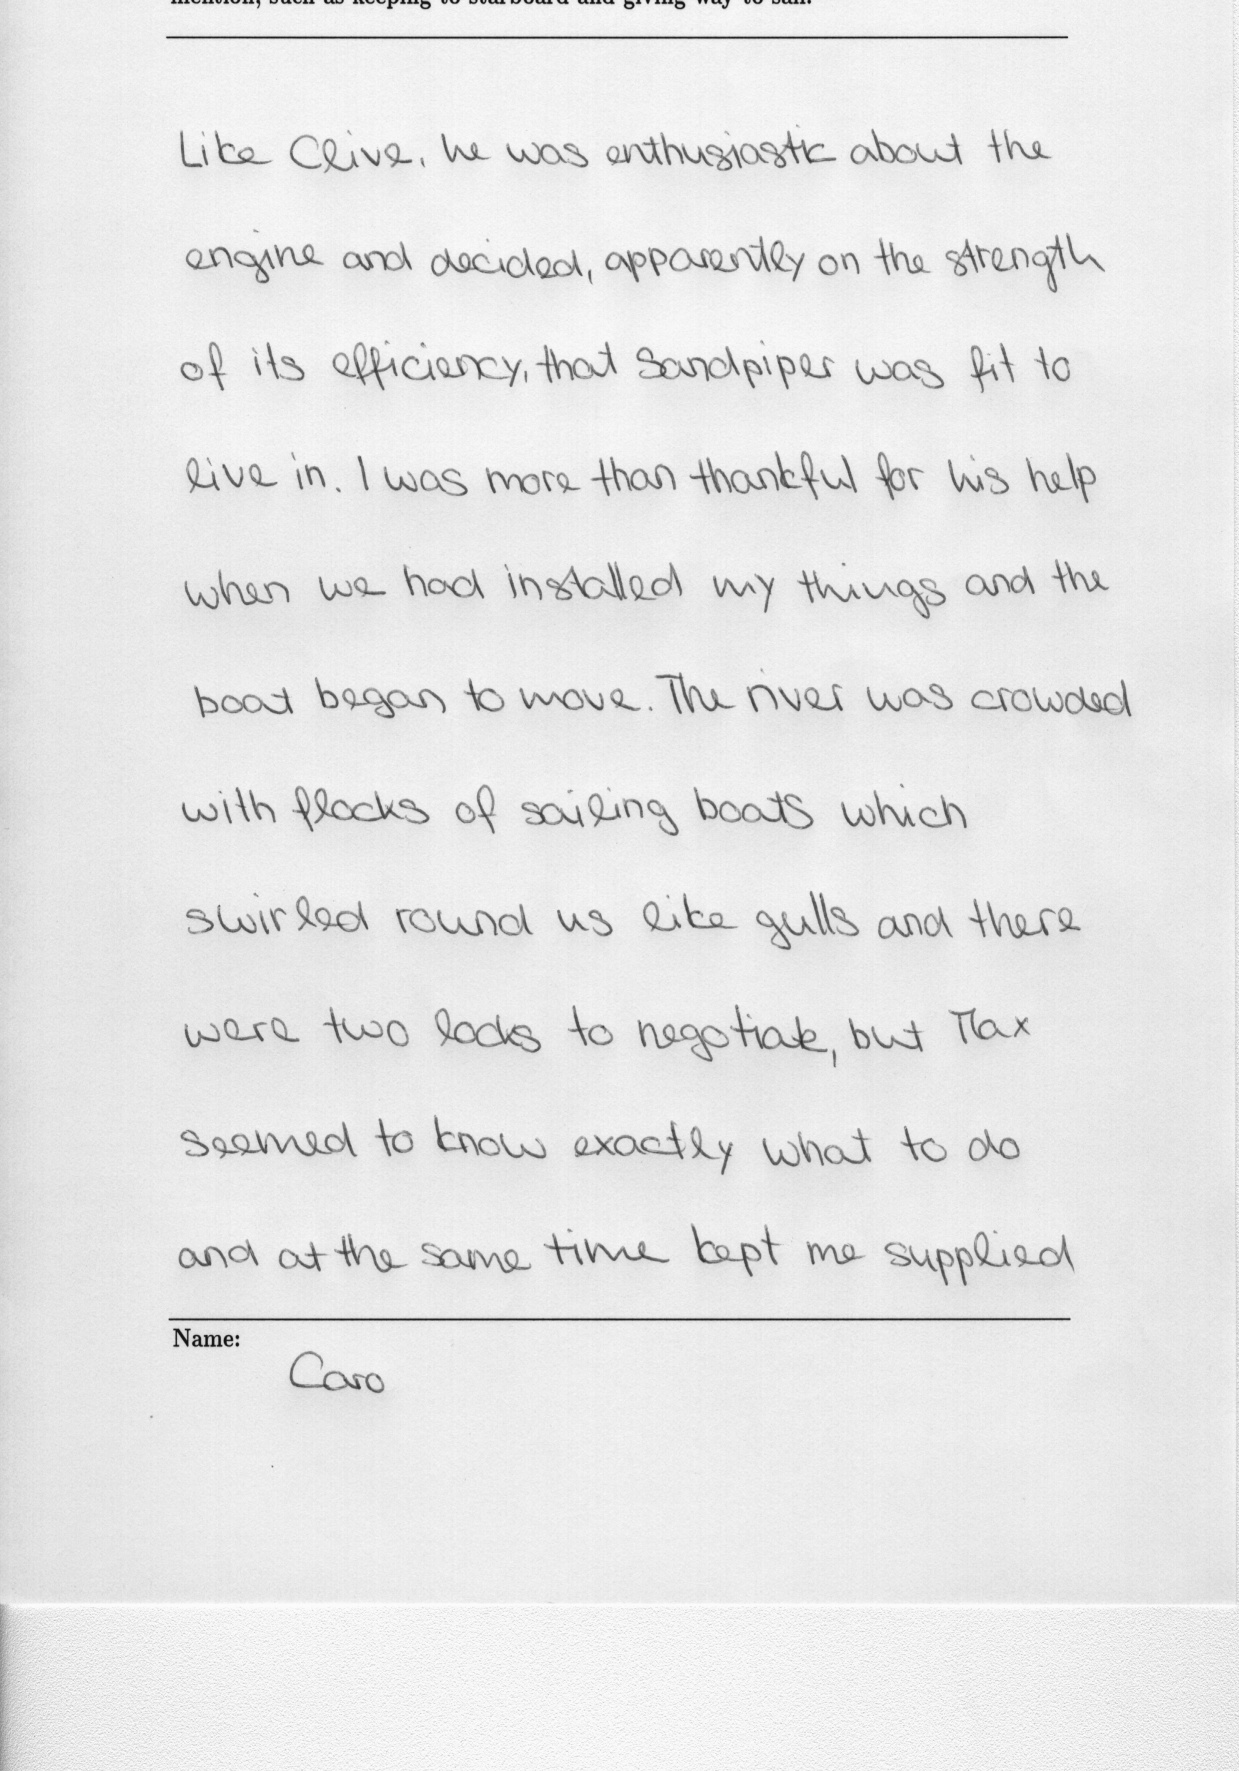 mention, such as keeping to starboard and giving way to sail.
Like Clive, he was enthusiastic about the
engine and decided, apparently on the strength
of its efficiency, that Sandpiper was fit to
live in. I was more than thankful for his help
when we had installed my things and the
boat began to move. The river was crowded
with flocks of sailing boats which
swirled round us like gulls and there
were two locks to negotiate, but Max
seemed to know exactly what to do
and at the same time kept me supplied
Name:
Caro